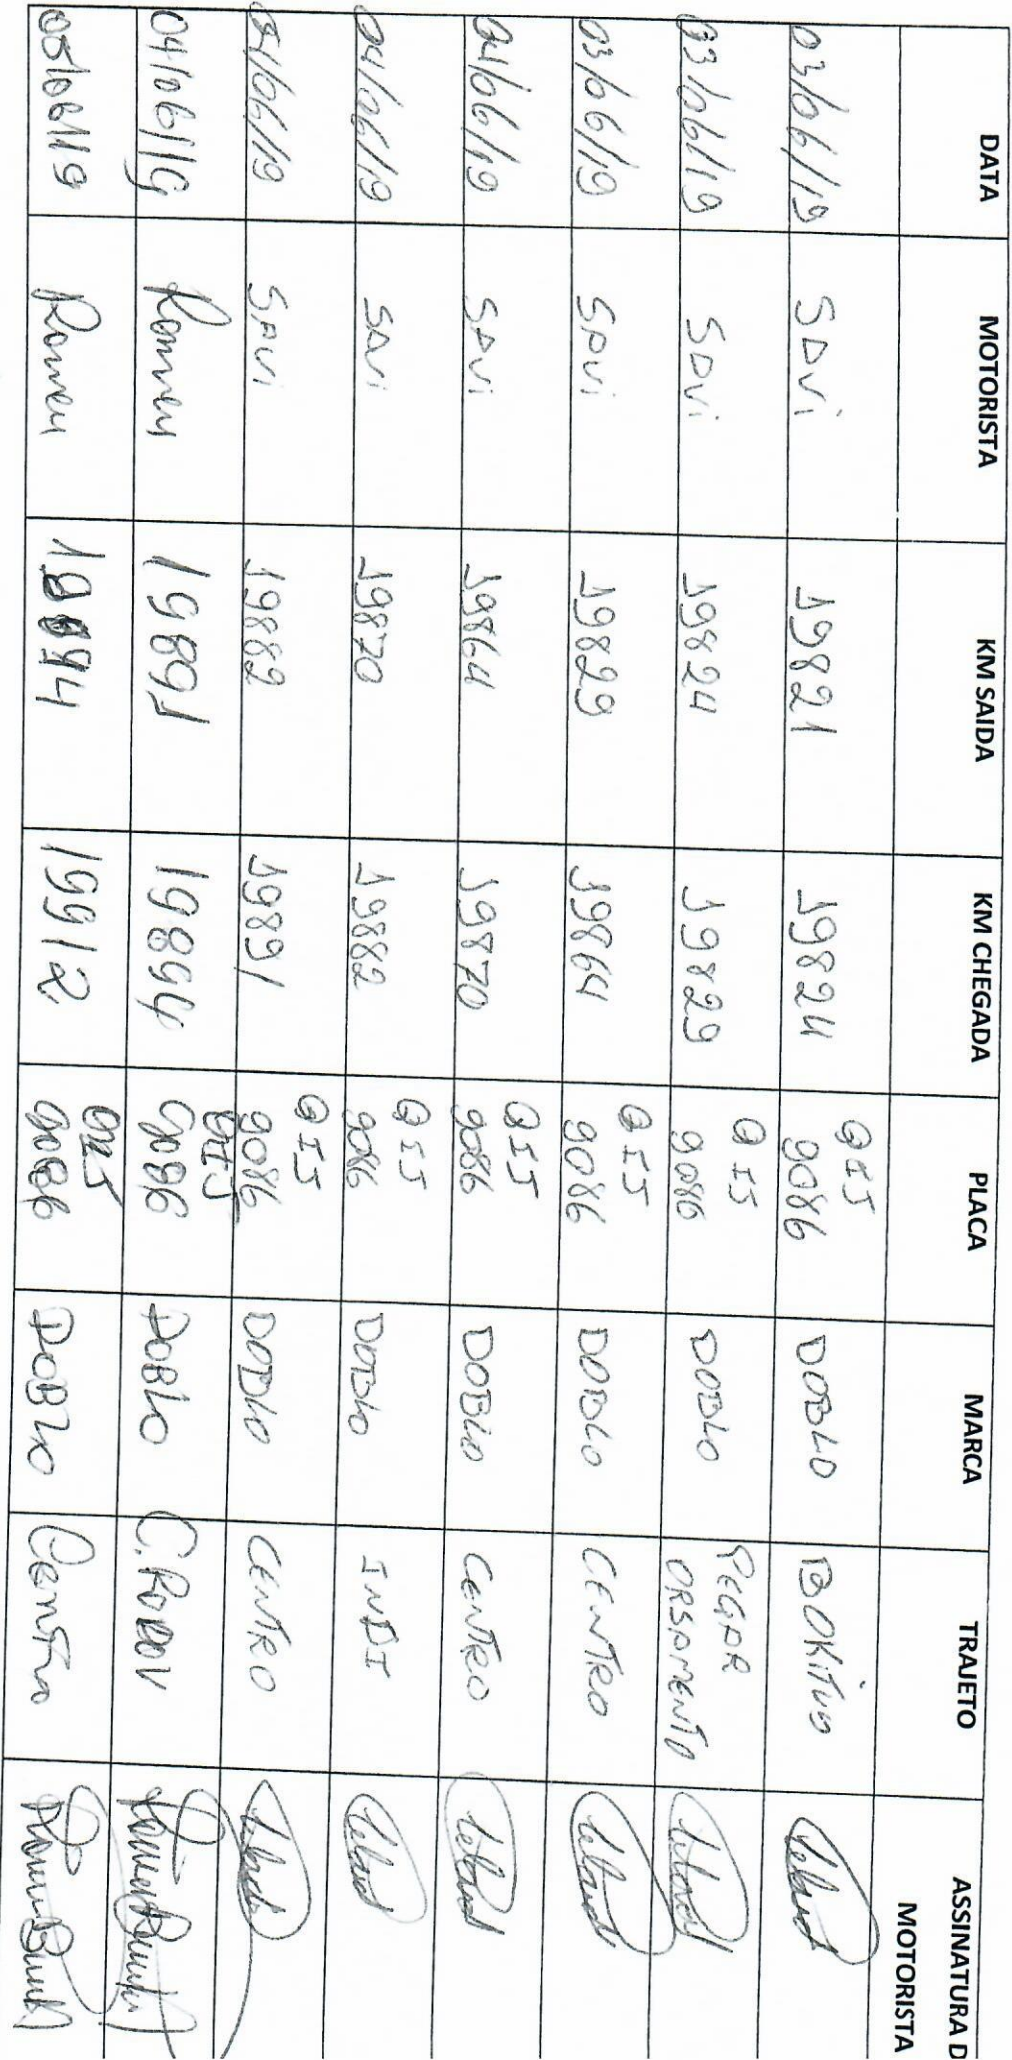 DATA MOTORISTA KM SAIDA KM CHEGADA PLACA MARCA TRAJETO ASSINATURA D
MOTORISTA
03/06/19 SAVi 19821 19824 QIJ 9086 DOBLO BOKITUS
03/06/19 SAVi 19824 19829 QIJ 9086 DOBLO PEGAR ORSAMENTO
03/06/19 SAVi 19829 19864 QIJ 9086 DOBLO CENTRO
04/06/19 SAVi 19864 19870 QIJ 9086 DOBLO CENTRO
04/06/19 SAVi 19870 19882 QIJ 9086 DOBLO INDI
04/06/19 SAVi 19882 19891 QIJ 9086 DOBLO CENTRO
04/06/19 Romeu 19891 19894 QIJ 9086 DOBLO C. RODOV
05/06/19 Romeu 19894 19912 QIJ 9086 DOBLO Centro